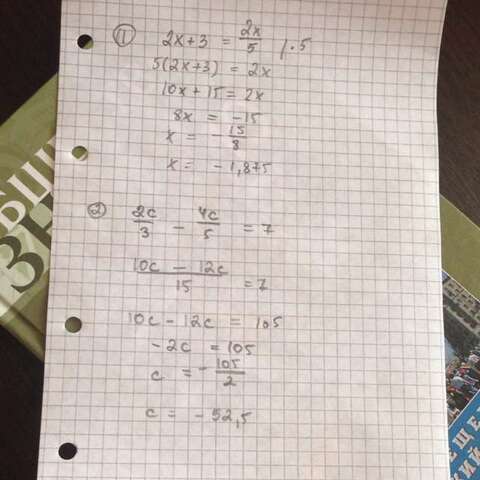 1 2x+3 = 2x/5 / · 5
5(2x+3) = 2x
10x + 15 = 2x
8x = -15
x = - 15/8
x = - 1,875
2 2c/3 - 4c/5 = 7
10c - 12c/15 = 7
10c - 12c = 105
-2c = 105
c = - 105/2
c = - 52,5